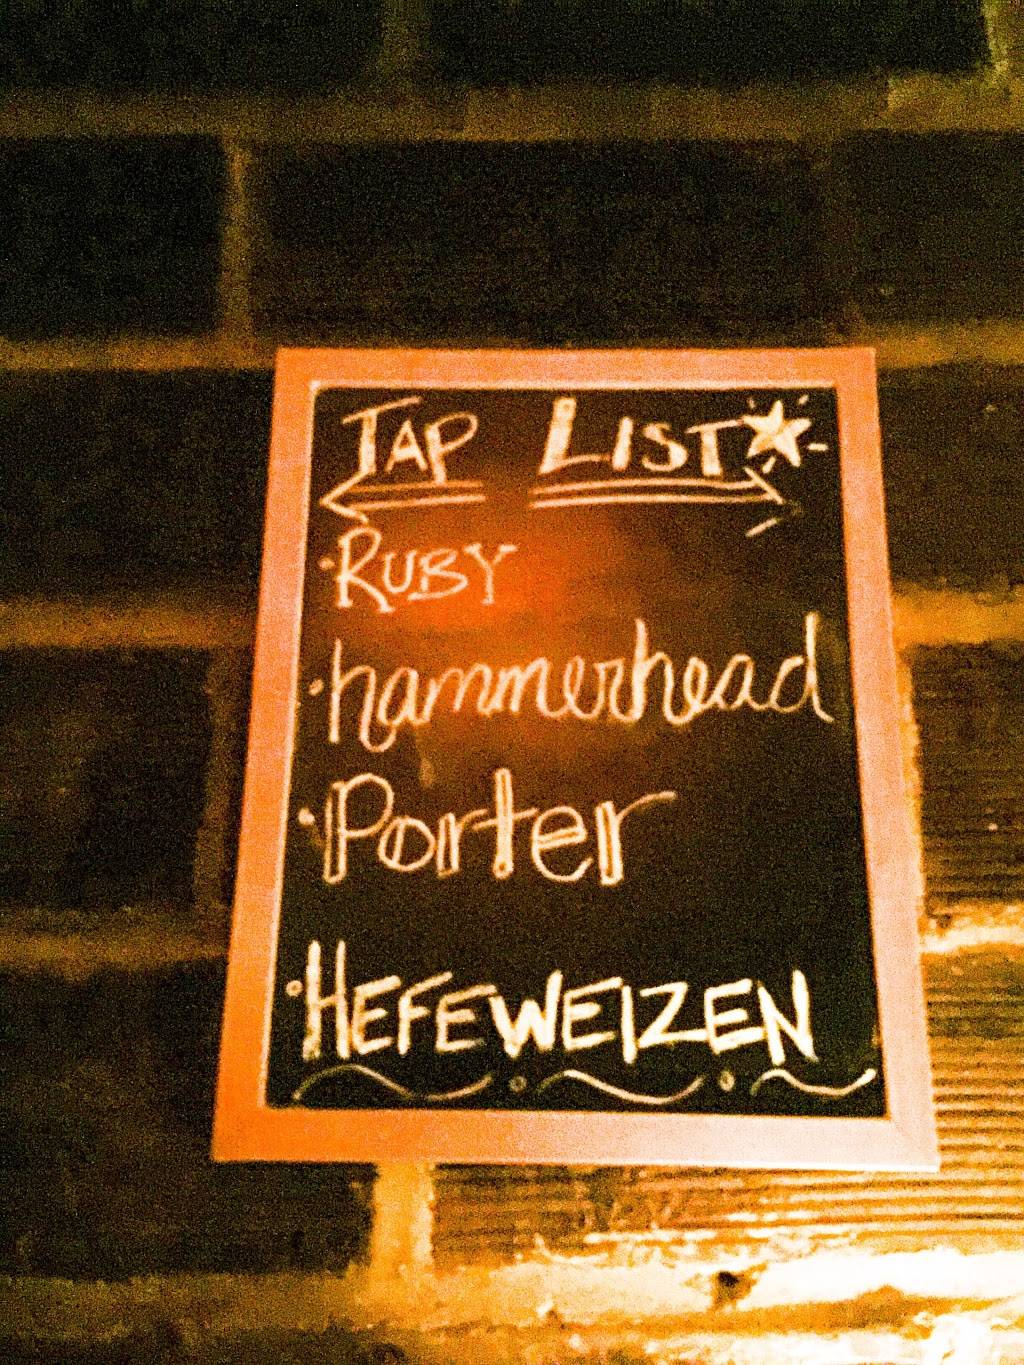 TAP LIST
• RUBY
• hammerhead
• Porter
• HEFEWEIZEN